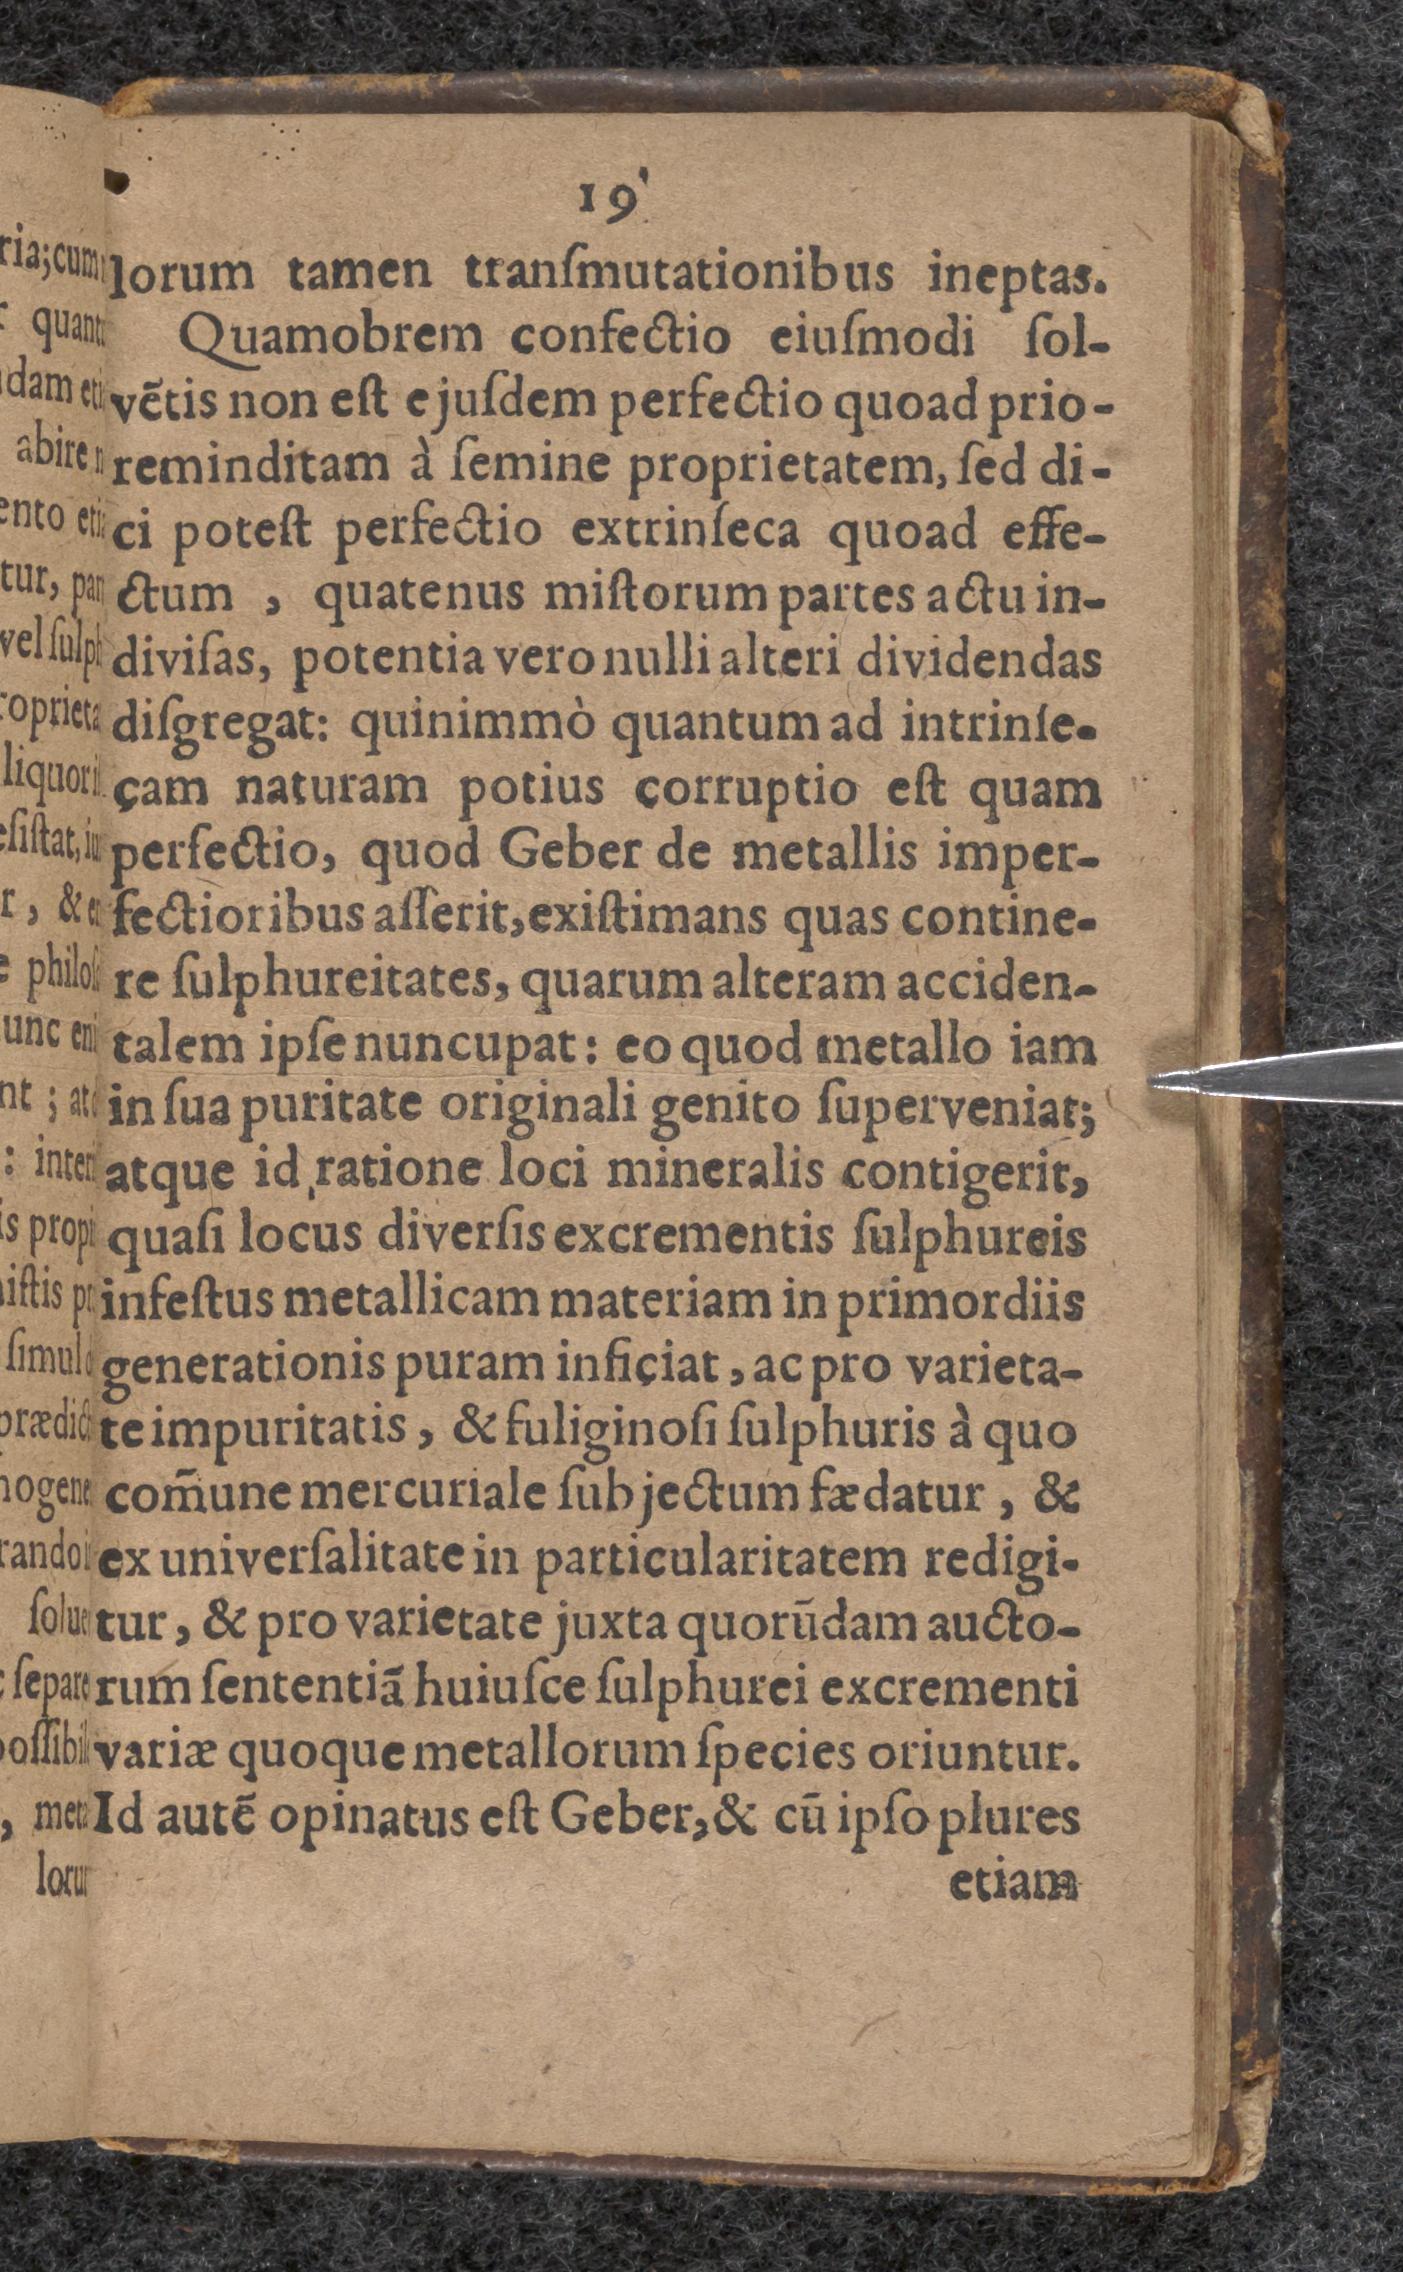 19
lorum tamen tranſmutationibus ineptas.
Quamobrem confectio eiuſmodi ſol-
vẽtis non eſt ejuſdem perfectio quoad prio-
reminditam à ſemine proprietatem, ſed di-
ci poteſt perfectio extrinſeca quoad effe-
ctum , quatenus miſtorum partes actu in-
diviſas, potentia vero nulli alteri dividendas
diſgregat: quinimmò quantum ad intrinſe-
çam naturam potius çorruptio eſt quam
perfectio, quod Geber de metallis imper-
fectioribus aſſerit, exiſtimans quas contine-
re ſulphureitates, quarum alteram acciden-
talem ipſe nuncupat: eo quod metallo iam
in ſua puritate originali genito ſuperveniat;
atque id ratione loci mineralis contigerit,
quaſi locus diverſis excrementis ſulphureis
infeſtus metallicam materiam in primordiis
generationis puram infiçiat, ac pro varieta-
te impuritatis, & fuliginoſi ſulphuris à quo
com̃une mercuriale ſubjectum fædatur, &
ex univerſalitate in particularitatem redigi-
tur, & pro varietate juxta quorũdam aucto-
rum ſententiã huiuſce ſulphurei excrementi
variæ quoque metallorum ſpecies oriuntur.
Id autẽ opinatus eſt Geber, & cũ ipſo plures
etiam